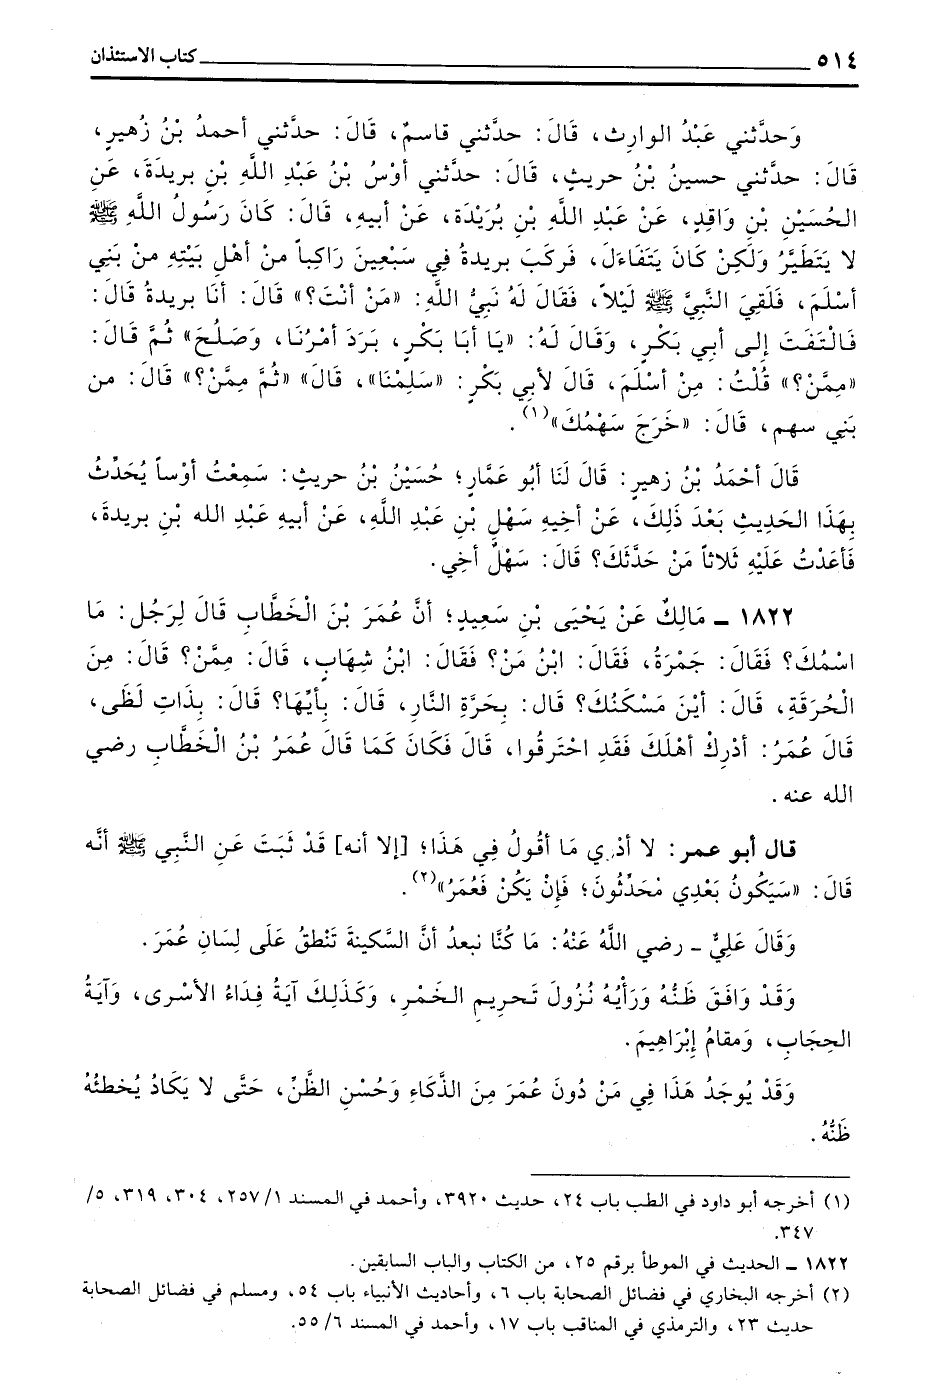 ٥١٤ كتاب الاستئذان
وَحدَّثني عَبْدُ الوارِث، قَالَ: حدَّثني قاسمٌ، قَالَ: حدَّثني أحمدُ بْنُ زُهيرٍ،
قَالَ: حدَّثني حسينُ بْنُ حريثٍ، قَالَ: حدَّثني أوْسُ بْنُ عَبْدِ اللَّهِ بْنِ بريدَةَ، عَنِ
الحُسَيْنِ بْنِ وَاقِدٍ، عَنْ عَبْدِ اللَّهِ بْنِ بُرَيْدَة، عَنْ أبيهِ، قَالَ: كَانَ رَسُولُ اللَّهِ ﷺ
لا يَتَطَيَّرُ وَلَكِنْ كَانَ يَتَفَاءَل، فَركَبَ بريدةُ فِي سَبْعِينَ رَاكِباً منْ أهْلِ بَيْتِهِ منْ بَنِي
أسْلَمَ، فَلَقِيَ النَّبِيَّ ﷺ لَيْلاً، فَقَالَ لَهُ نَبِيُّ اللَّهِ: «مَنْ أنْتَ؟» قَالَ: أنَا بريدةُ قَالَ:
فَالْتَفَتَ إلى أبي بَكْرٍ، وَقَالَ لَهُ: «يَا أبَا بَكْرٍ، بَرَدَ أمْرُنَا، وَصَلُحَ» ثُمَّ قَالَ:
«مِمَّنْ؟» قُلْتُ: مِنْ أسْلَمَ، قَالَ لأبي بَكْرٍ: «سَلِمْنَا»، قَالَ» «ثُمَّ مِمَّنْ؟» قَالَ: من
بَنِي سهم، قَالَ: «خَرَجَ سَهْمُكَ»(١).
قَالَ أحْمَدُ بْنُ زهيرٍ: قَالَ لَنَا أبُو عَمَّارٍ؛ حُسَيْنُ بْنُ حريثٍ: سَمِعْتُ أوْساً يُحَدِّثُ
بِهَذَا الحَديثِ بَعْدَ ذَلِكَ، عَنْ أخِيهِ سَهْلِ بْنِ عَبْدِ اللَّهِ، عَنْ أبيهِ عَبْدِ الله بْنِ بريدةَ،
فَأعَدْتُ عَلَيْهِ ثَلاثاً مَنْ حَدَّثَكَ؟ قَالَ: سَهْلٌ أخِي.
١٨٢٢ ـ مَالِكٌ عَنْ يَحْيَى بْنِ سَعِيدٍ؛ أنَّ عُمَرَ بْنَ الْخَطَّابِ قَالَ لِرَجُل: مَا
اسْمُكَ؟ فَقَالَ: جَمْرَةُ، فَقَالَ: ابْنُ مَنْ؟ فَقَالَ: ابْنُ شِهَابٍ، قَالَ: مِمَّنْ؟ قَالَ: مِنَ
الْحُرَقَةِ، قَالَ: أيْنَ مَسْكَنُكَ؟ قال: بِحَرَّةِ النَّارِ، قَالَ: بِأيِّهَا؟ قَالَ: بِذَاتِ لَظًى،
قَالَ عُمَرُ: أدْرِكْ أهْلَكَ فَقَدِ احْتَرقُوا، قَالَ فَكَانَ كَمَا قَالَ عُمَرُ بْنُ الْخَطَّابِ رضي
الله عنه.
قال أبو عمر: لا أدْرِي مَا أقُولُ فِي هَذَا؛ [إلا أنه] قَدْ ثَبَتَ عَنِ النَّبِي ﷺ أنَّه
قَالَ: «سَيَكُونُ بَعْدِي مُحَدِّثُونَ؛ فَإنْ يَكُنْ فَعُمَرُ»(٢).
وَقَالَ عَلِيٌّ ـ رضي اللَّهُ عَنْهُ: مَا كُنَّا نبعدُ أنَّ السَّكينةَ تَنْطقُ عَلَى لِسَانِ عُمَرَ.
وَقَدْ وَافَقَ ظَنُّهُ وَرَأْيُهُ نُزُولَ تَحرِيمِ الخَمْرِ، وَكَذَلِكَ آيَةُ فِدَاءُ الأسْرى، وَآيَةُ
الحِجَابِ، وَمقامُ إبْرَاهِيمَ.
وَقَدْ يُوجَدُ هَذَا فِي مَنْ دُونَ عُمَرَ مِنَ الذَّكَاءِ وَحُسْنِ الظَّنِّ، حَتَّى لا يَكَادُ يُخطئُهُ
ظَنُّهُ.
(١) أخرجه أبو داود في الطب باب ٢٤، حديث ٣٩٢٠، وأحمد في المسند ١/ ٢٥٧، ٣٠٤، ٣١٩، ٥/
٣٤٧.
١٨٢٢ ـ الحديث في الموطأ برقم ٢٥، من الكتاب والباب السابقين.
(٢) أخرجه البخاري في فضائل الصحابة باب ٦، وأحاديث الأنبياء باب ٥٤، ومسلم في فضائل الصحابة
حديث ٢٣، والترمذي في المناقب باب ١٧، وأحمد في المسند ٦/ ٥٥.